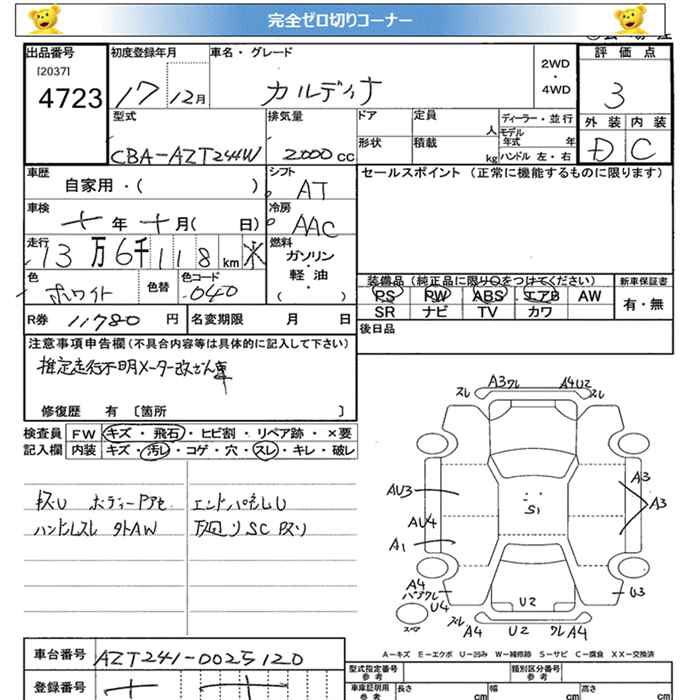 完全ゼロ切りコーナー
出品番号 初度登録年月 車名・グレード 2WD・4WD 評価点
[2037]
4723 17 12月 カルディナ 3
型式 排気量 ドア 定員 人 ディーラー・並行 外装 内装
CBA-AZT241W 2000cc 形状 積載 kg モデル年式 年 ハンドル 左・右 D C
車歴 自家用・( ) シフト AT セールスポイント (正常に機能するものに限ります)
車検 年 月( 日) 冷房 AAC
走行 13万6千118km 燃料 ガソリン・軽油 ( )
色 ホワイト 色替 色コード 040
装備品 (純正品に限り○をつけてください) 新車保証書
PS PW ABS エアB AW 有・無
SR ナビ TV カワ
R券 11780円 名変期限 月 日 後日品
注意事項申告欄(不具合内容等は具体的に記入して下さい)
推定走行不明メーター改ざん車
修復歴 有 〔箇所 〕
検査員 FW キズ・飛石・ヒビ割・リペア跡・×要
記入欄 内装 キズ・汚レ・コゲ・穴・スレ・キレ・破レ
ハンドルスレ
スレ A3 ワレ A4 U2 スレ
AU3
AU4
A1
S1
A3
A3
A4
U4
スペア
U3
U2
A4 U2 ワレ A4
A-キズ E-エクボ U-凹み W-補修跡 S-サビ C-腐食 XX-交換済
車台番号 AZT241-0025120
登録番号
型式指定番号 参考 類別区分番号 参考
車庫証明用 参考 長さ cm 幅 cm 高さ cm